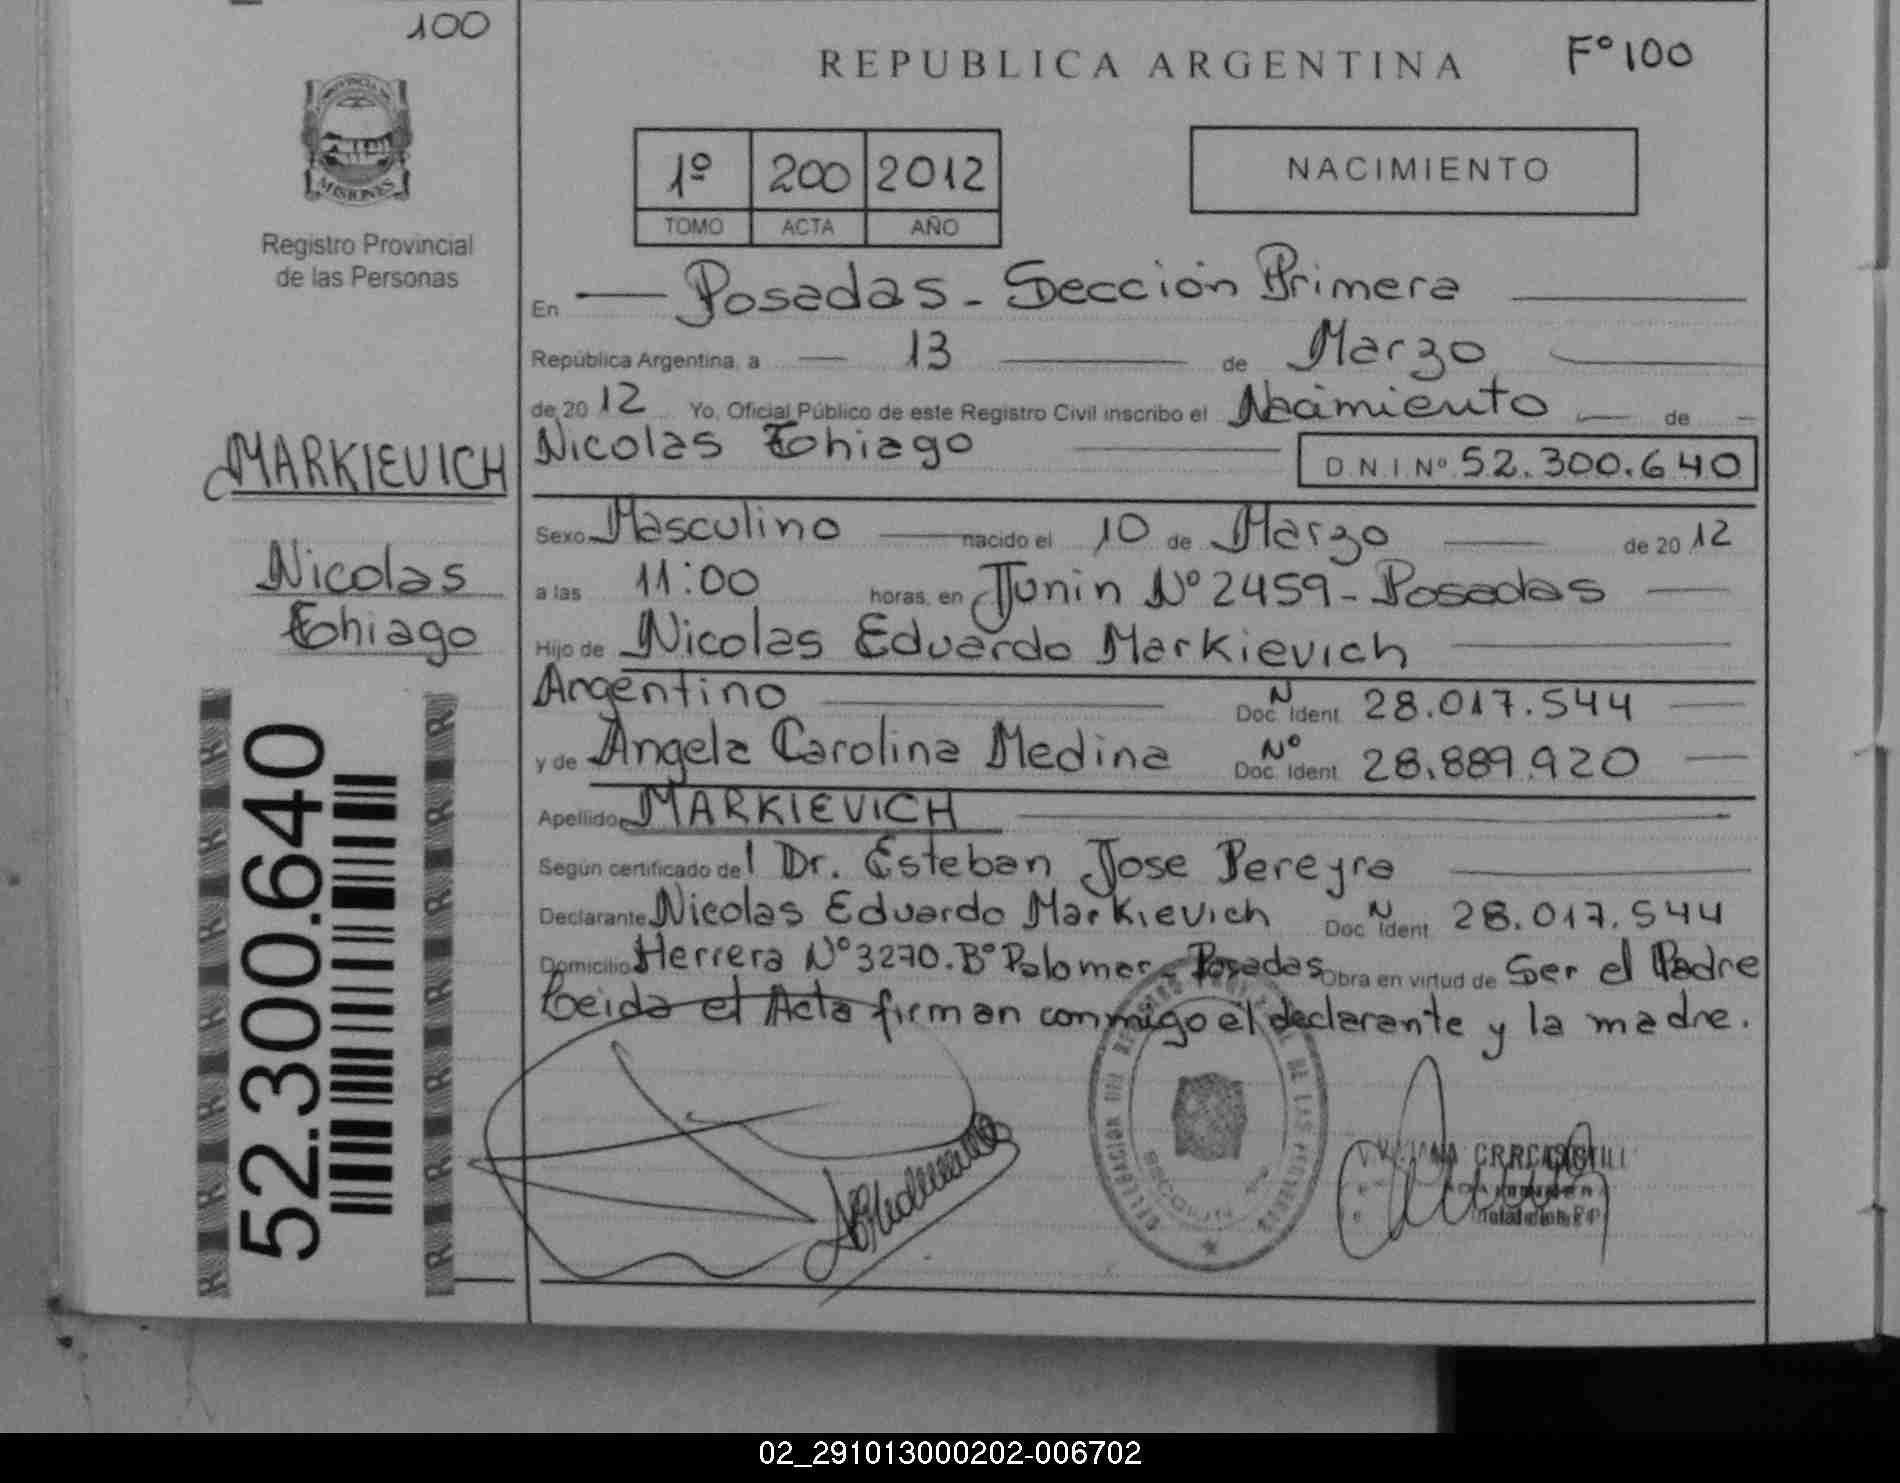 100
REPUBLICA ARGENTINA
Fº 100
MISIONES
Registro Provincial
de las Personas
1º 200 2012
TOMO ACTA AÑO
NACIMIENTO
En Posadas - Sección Primera
República Argentina, a 13 de Marzo
de 20 12 Yo, Oficial Público de este Registro Civil inscribo el Nacimiento de
Nicolas Thiago D.N.I. Nº 52.300.640
MARKIEVICH
Nicolas
Thiago
52.300.640
Sexo Masculino nacido el 10 de Marzo de 20 12
a las 11:00 horas, en Junin Nº 2459 - Posadas
Hijo de Nicolas Eduardo Markievich
Argentino Doc. Ident. N 28.017.544
y de Angela Carolina Medina Doc. Ident. Nº 28.889.920
Apellido MARKIEVICH
Según certificado del Dr. Esteban Jose Pereyra
Declarante Nicolas Eduardo Markievich Doc. Ident. N 28.017.544
Domicilio Herrera Nº 3270. Bº Palomar - Posadas Obra en virtud de Ser el Padre
Leida el Acta firman conmigo el declarante y la madre.
02_291013000202-006702